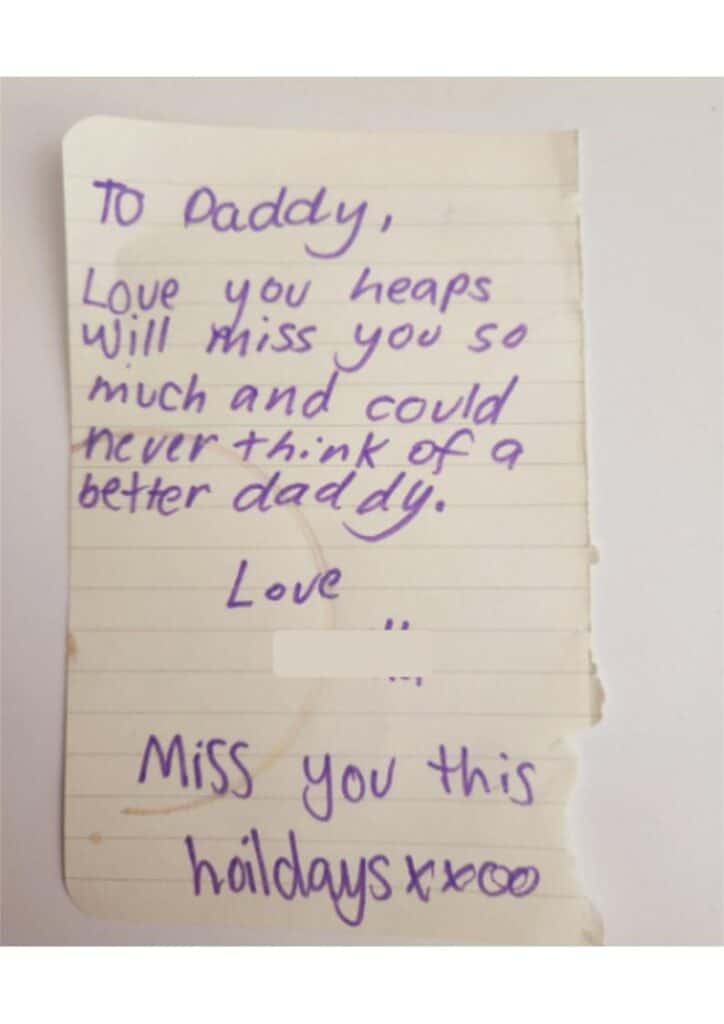 To Daddy,
Love you heaps
Will miss you so
much and could
never think of a
better daddy.
Love
Miss you this
haildays xxoo